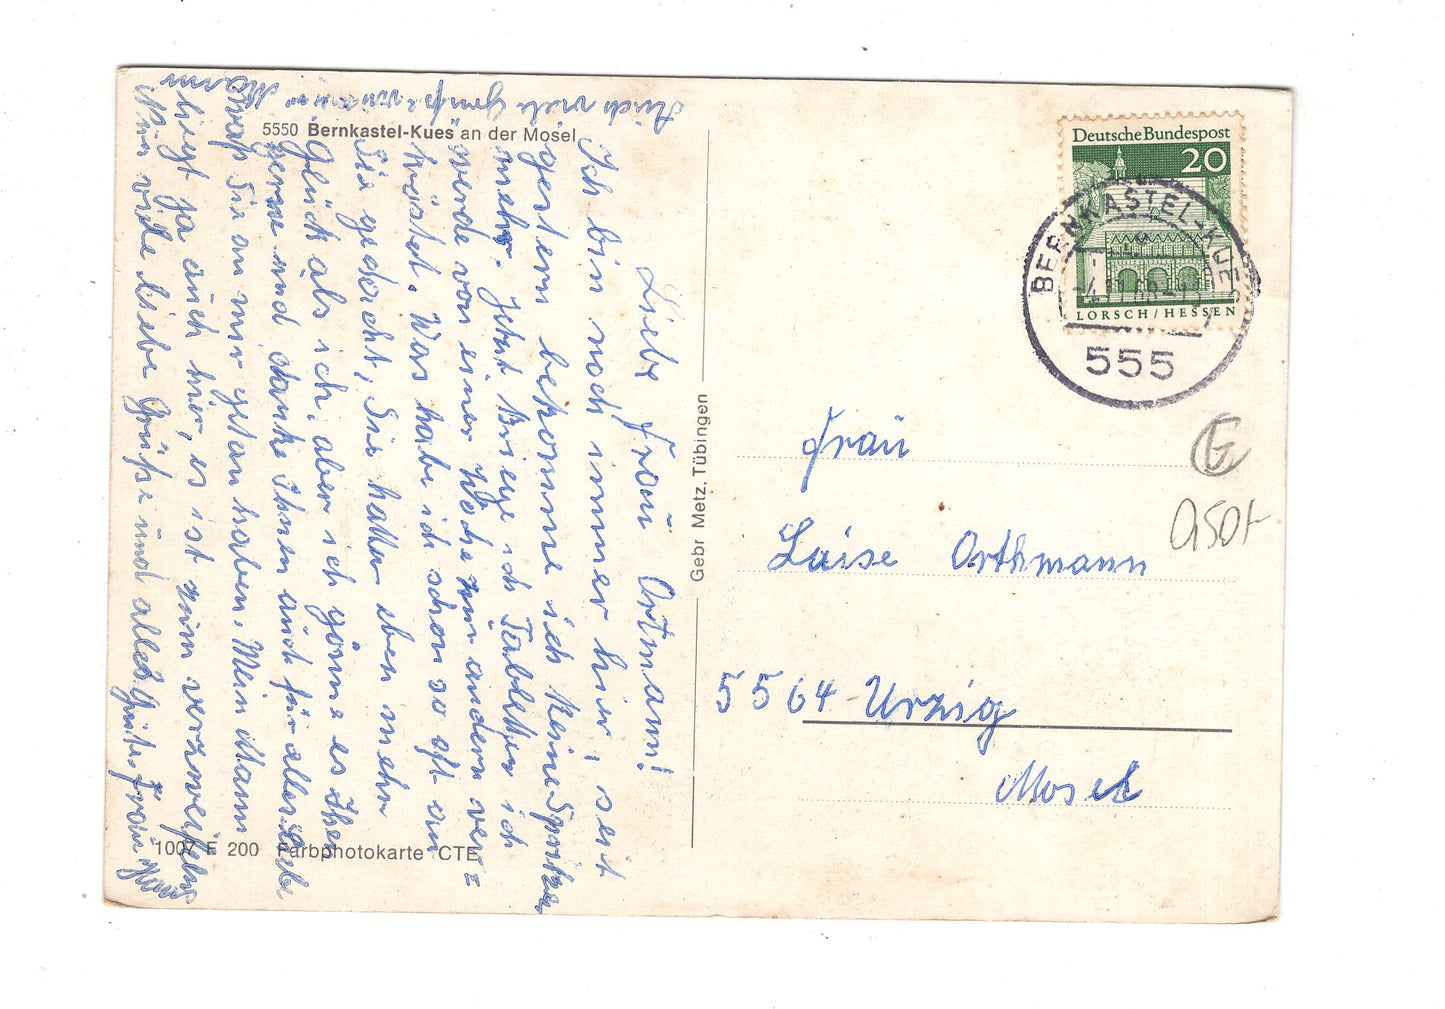 5550 Bernkastel-Kues an der Mosel
Liebe Frau Ortmann!
Ich bin noch immer hier, seit
gestern bekomme ich keine Spritzen
mehr. Jetzt kriege ich Tabletten ich
werde von einer Woche zur andern ver=
tröstet. Was habe ich schon so oft an
Sie gedacht, Sie hatten eben mehr
Glück als ich, aber ich gönne es Ihen
gerne und danke Ihnen auch für alles Liebe
was Sie an mir getan haben. Mein Mann
liegt ja auch hier, es ist zum verzweifeln
Nun viele liebe Grüße und alles Gute. Frau
Auch viele Grüße von m. Mann
1007 E 200 Farbphotokarte CTE
Gebr Metz, Tübingen
Deutsche Bundespost
20
LORSCH/HESSEN
BERNKASTEL-KUES
-4.11.68-13
555
Frau
Luise Orthmann
5564 Ürzig
Mosel
0,50+